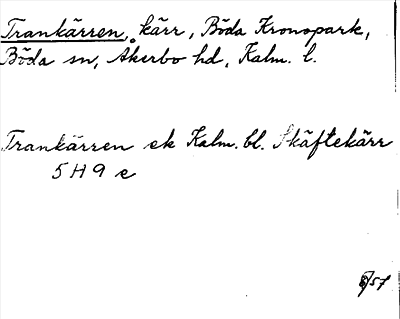 Trankärren, kärr, Böda Kronopark,
Böda sn, Åkerbo hd, Kalm. l.
Trankärren ek Kalm. bl. Skäftekärr
5 H 9 e
57